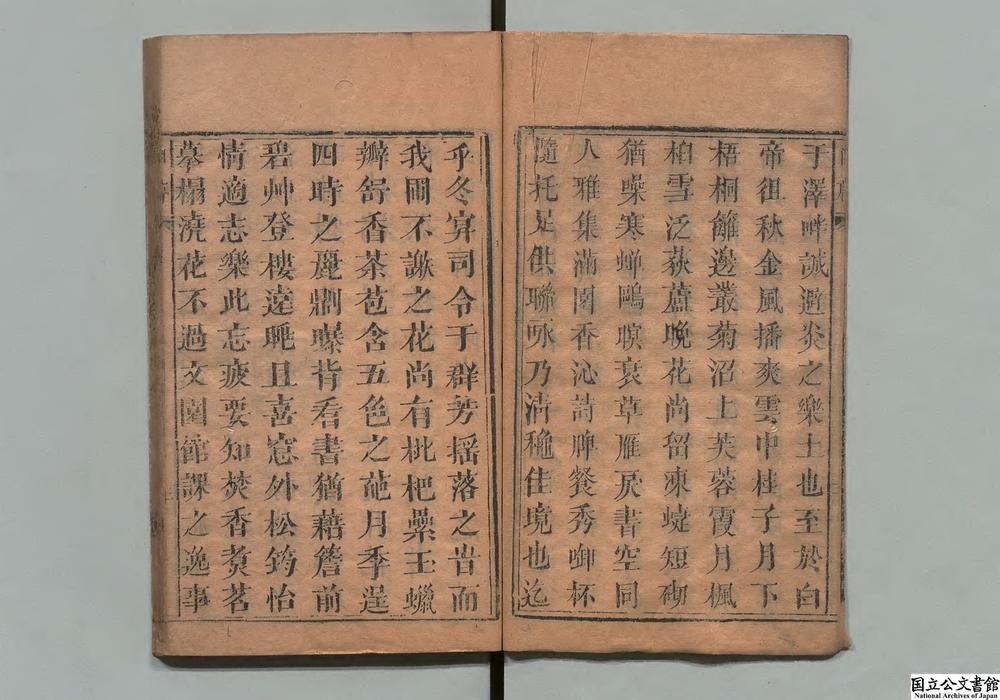 于澤畔誠避炎之樂土也至於白
帝徂秋金風播爽雲中桂子月下
梧桐籬邊叢菊沼上芙蓉霞月楓
柏雪泛荻蘆晚花尚留凍蜨短砌
猶噪寒蟬鷗暝衰草雁戾書空同
人雅集滿園香沁詩脾餐秀啣杯
隨托足供聯咏乃清穐佳境也迄
乎冬穽司令于群芳揺落之旹而
我圃不謝之花尚有枇杷櫐玉蠟
瓣舒香茶苞含五色之葩月季逞
四時之麗剛曝背看書猶藉簷前
碧艸登樓遠眺且喜窓外松筠怡
情適志樂此忘疲要知焚香煑茗
摹榻澆花不過文園館課之逸事
国立公文書館
National Archives of Japan